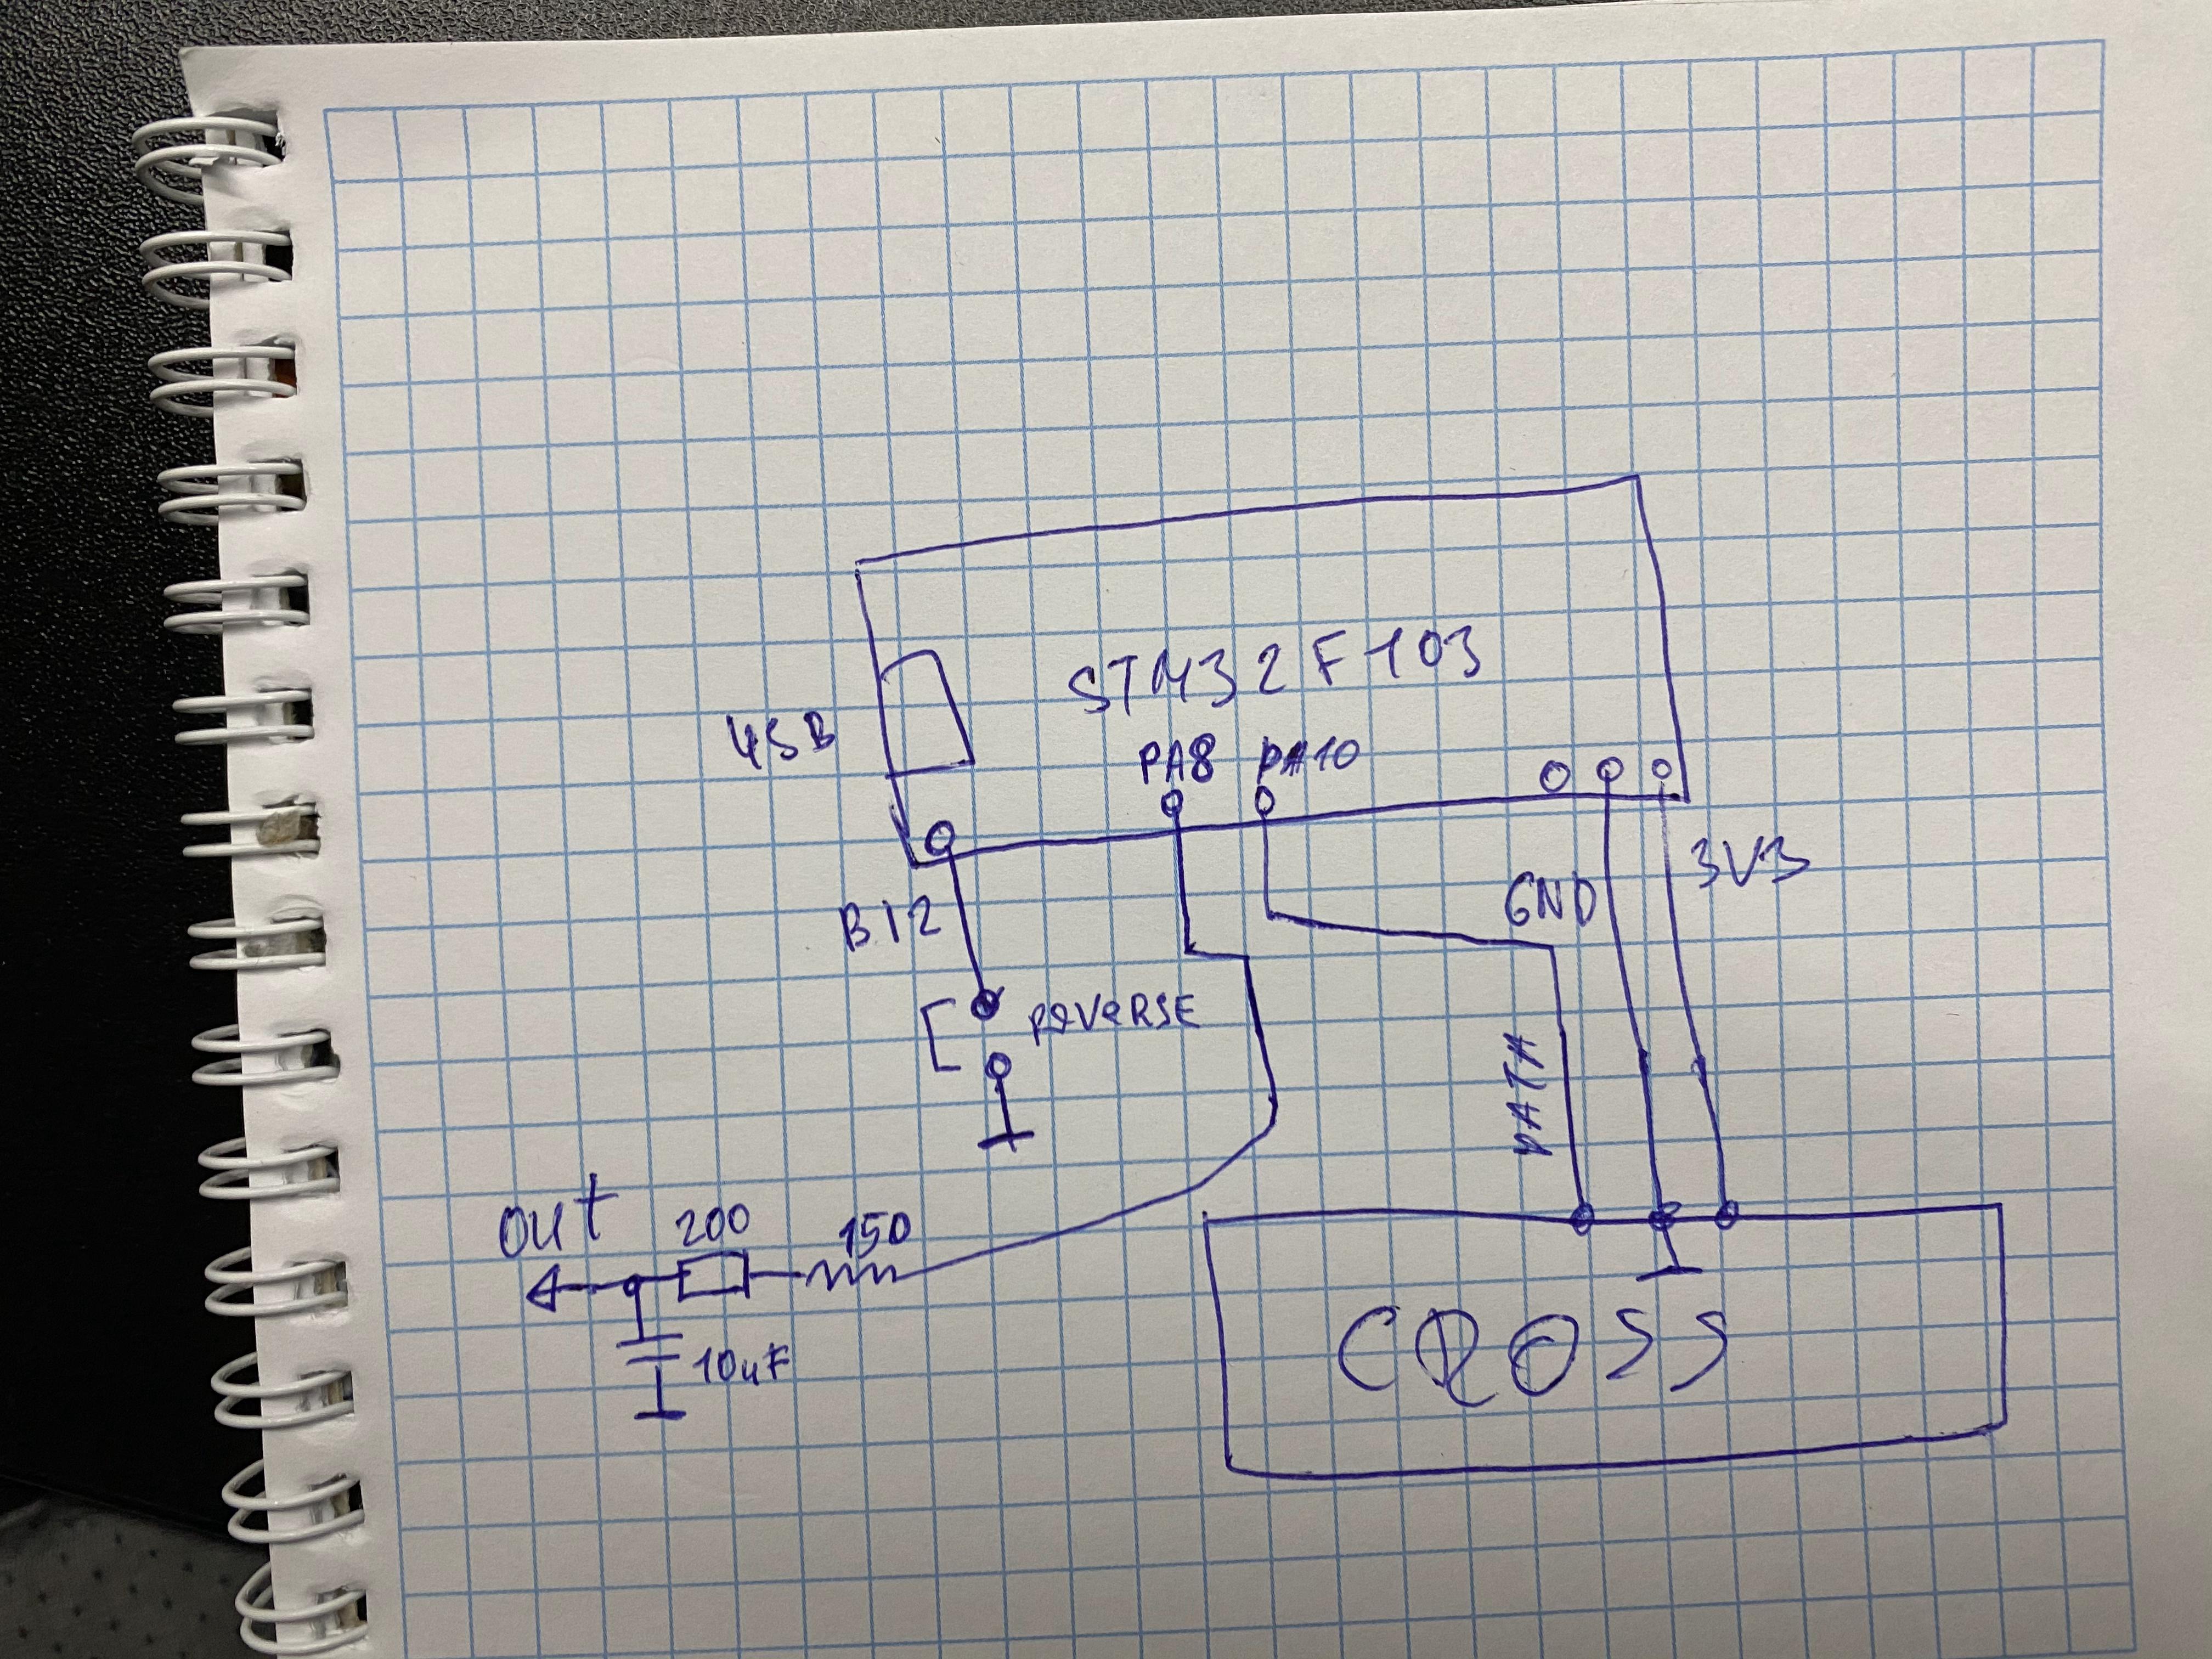 STM32F103
USB
PA8 PA10
3V3
GND
B12
REVERSE
DATA
OUT 200 150
10uF
CROSS